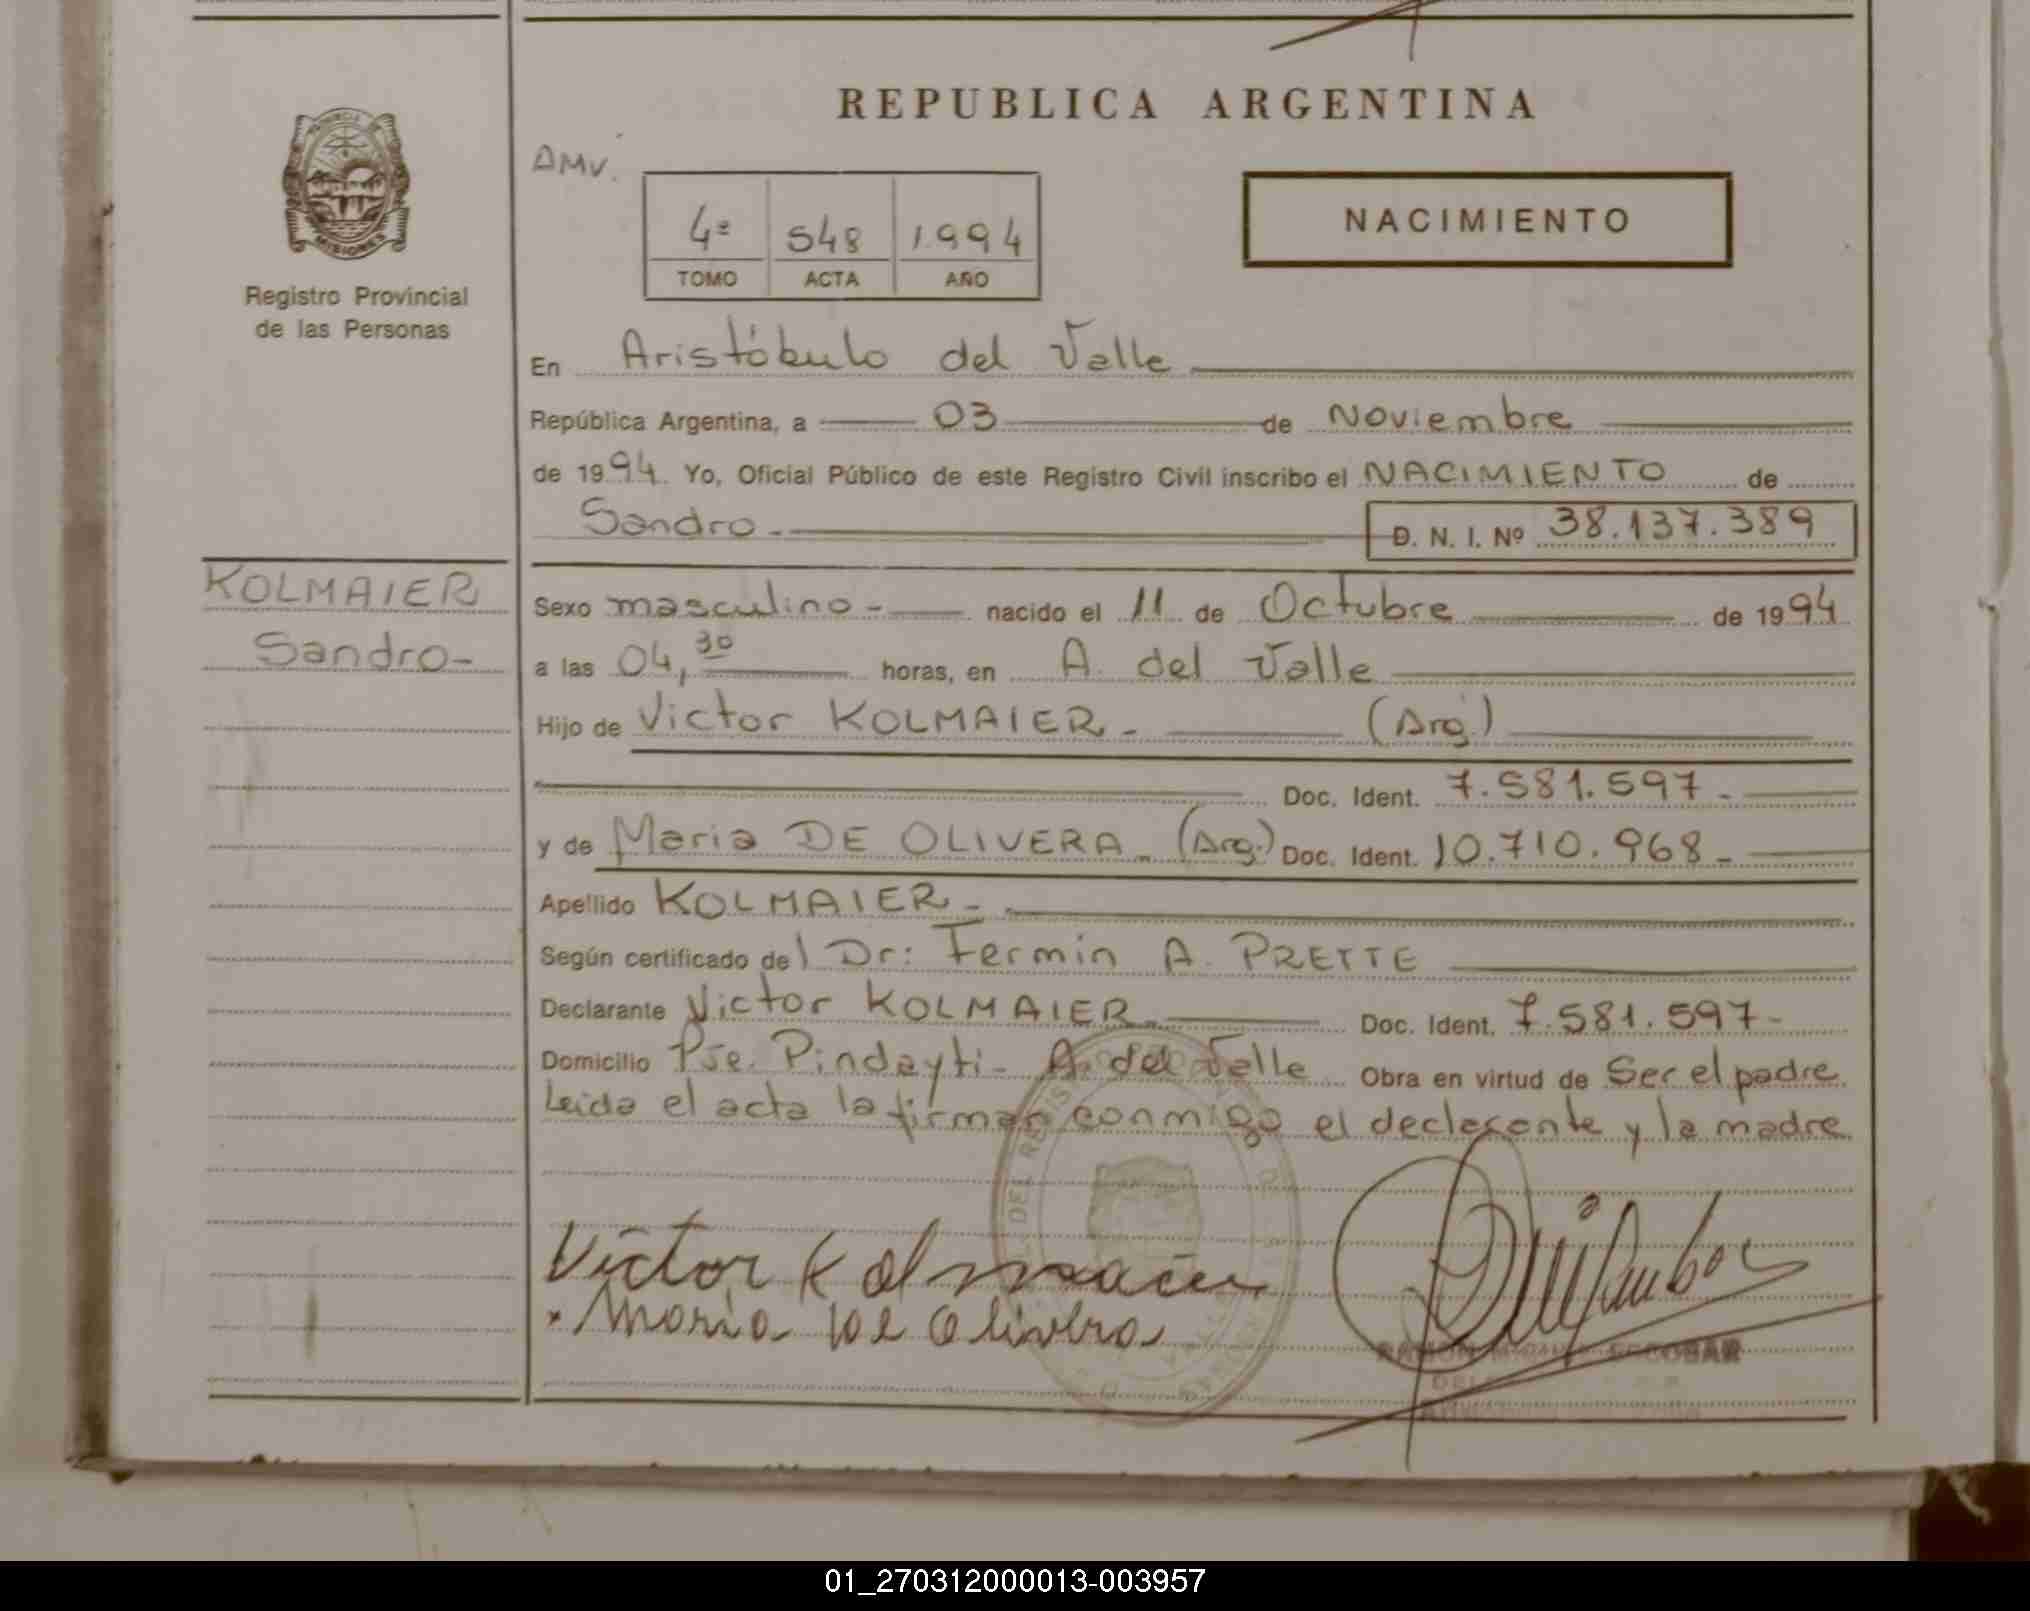 REPUBLICA ARGENTINA
PROVINCIA DE
MISIONES
Registro Provincial
de las Personas
AMV.
4º 548 1994
TOMO ACTA AÑO
NACIMIENTO
En Aristóbulo del Valle
República Argentina, a 03 de Noviembre
de 1994. Yo, Oficial Público de este Registro Civil inscribo el NACIMIENTO de
Sandro - D. N. I. Nº 38.137.389
KOLMAIER
Sandro-
Sexo masculino - nacido el 11 de Octubre de 1994
a las 04,30 horas, en A. del Valle
Hijo de Victor KOLMAIER - (Arg.)
Doc. Ident. 7.581.597-
y de Maria DE OLIVERA - (Arg.) Doc. Ident. 10.710.968-
Apellido KOLMAIER -
Según certificado del Dr: Fermin A. PRETTE
Declarante Victor KOLMAIER - Doc. Ident. 7.581.597-
Domicilio Pje. Pindayti - A. del Valle Obra en virtud de Ser el padre
Leida el acta la firman conmigo el declarante y la madre
Victor Kolmaier
Maria de Olivera
ESCOBAR
01_270312000013-003957